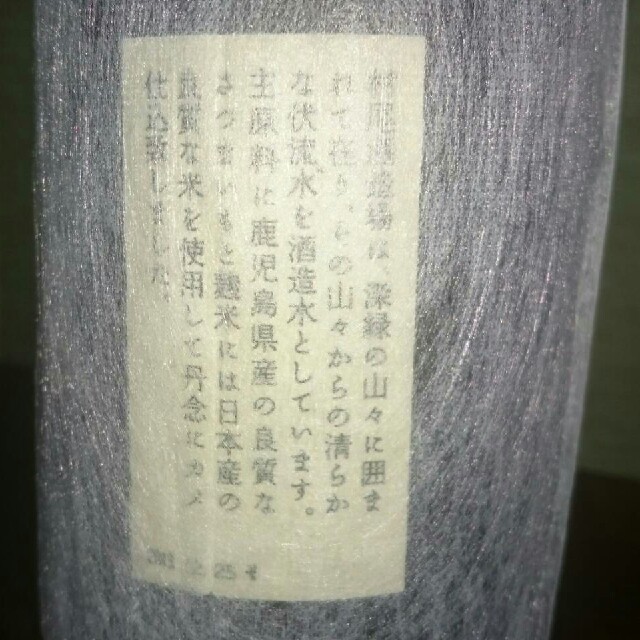 蒸留場は、深緑の山々に囲ま
れて在り、その山々からの清らか
な伏流水を酒造水としています。
主原料に鹿児島県産の良質な
さつまいもと麹米には日本産の
良質な米を使用して丹念にカメ
仕込致しました。